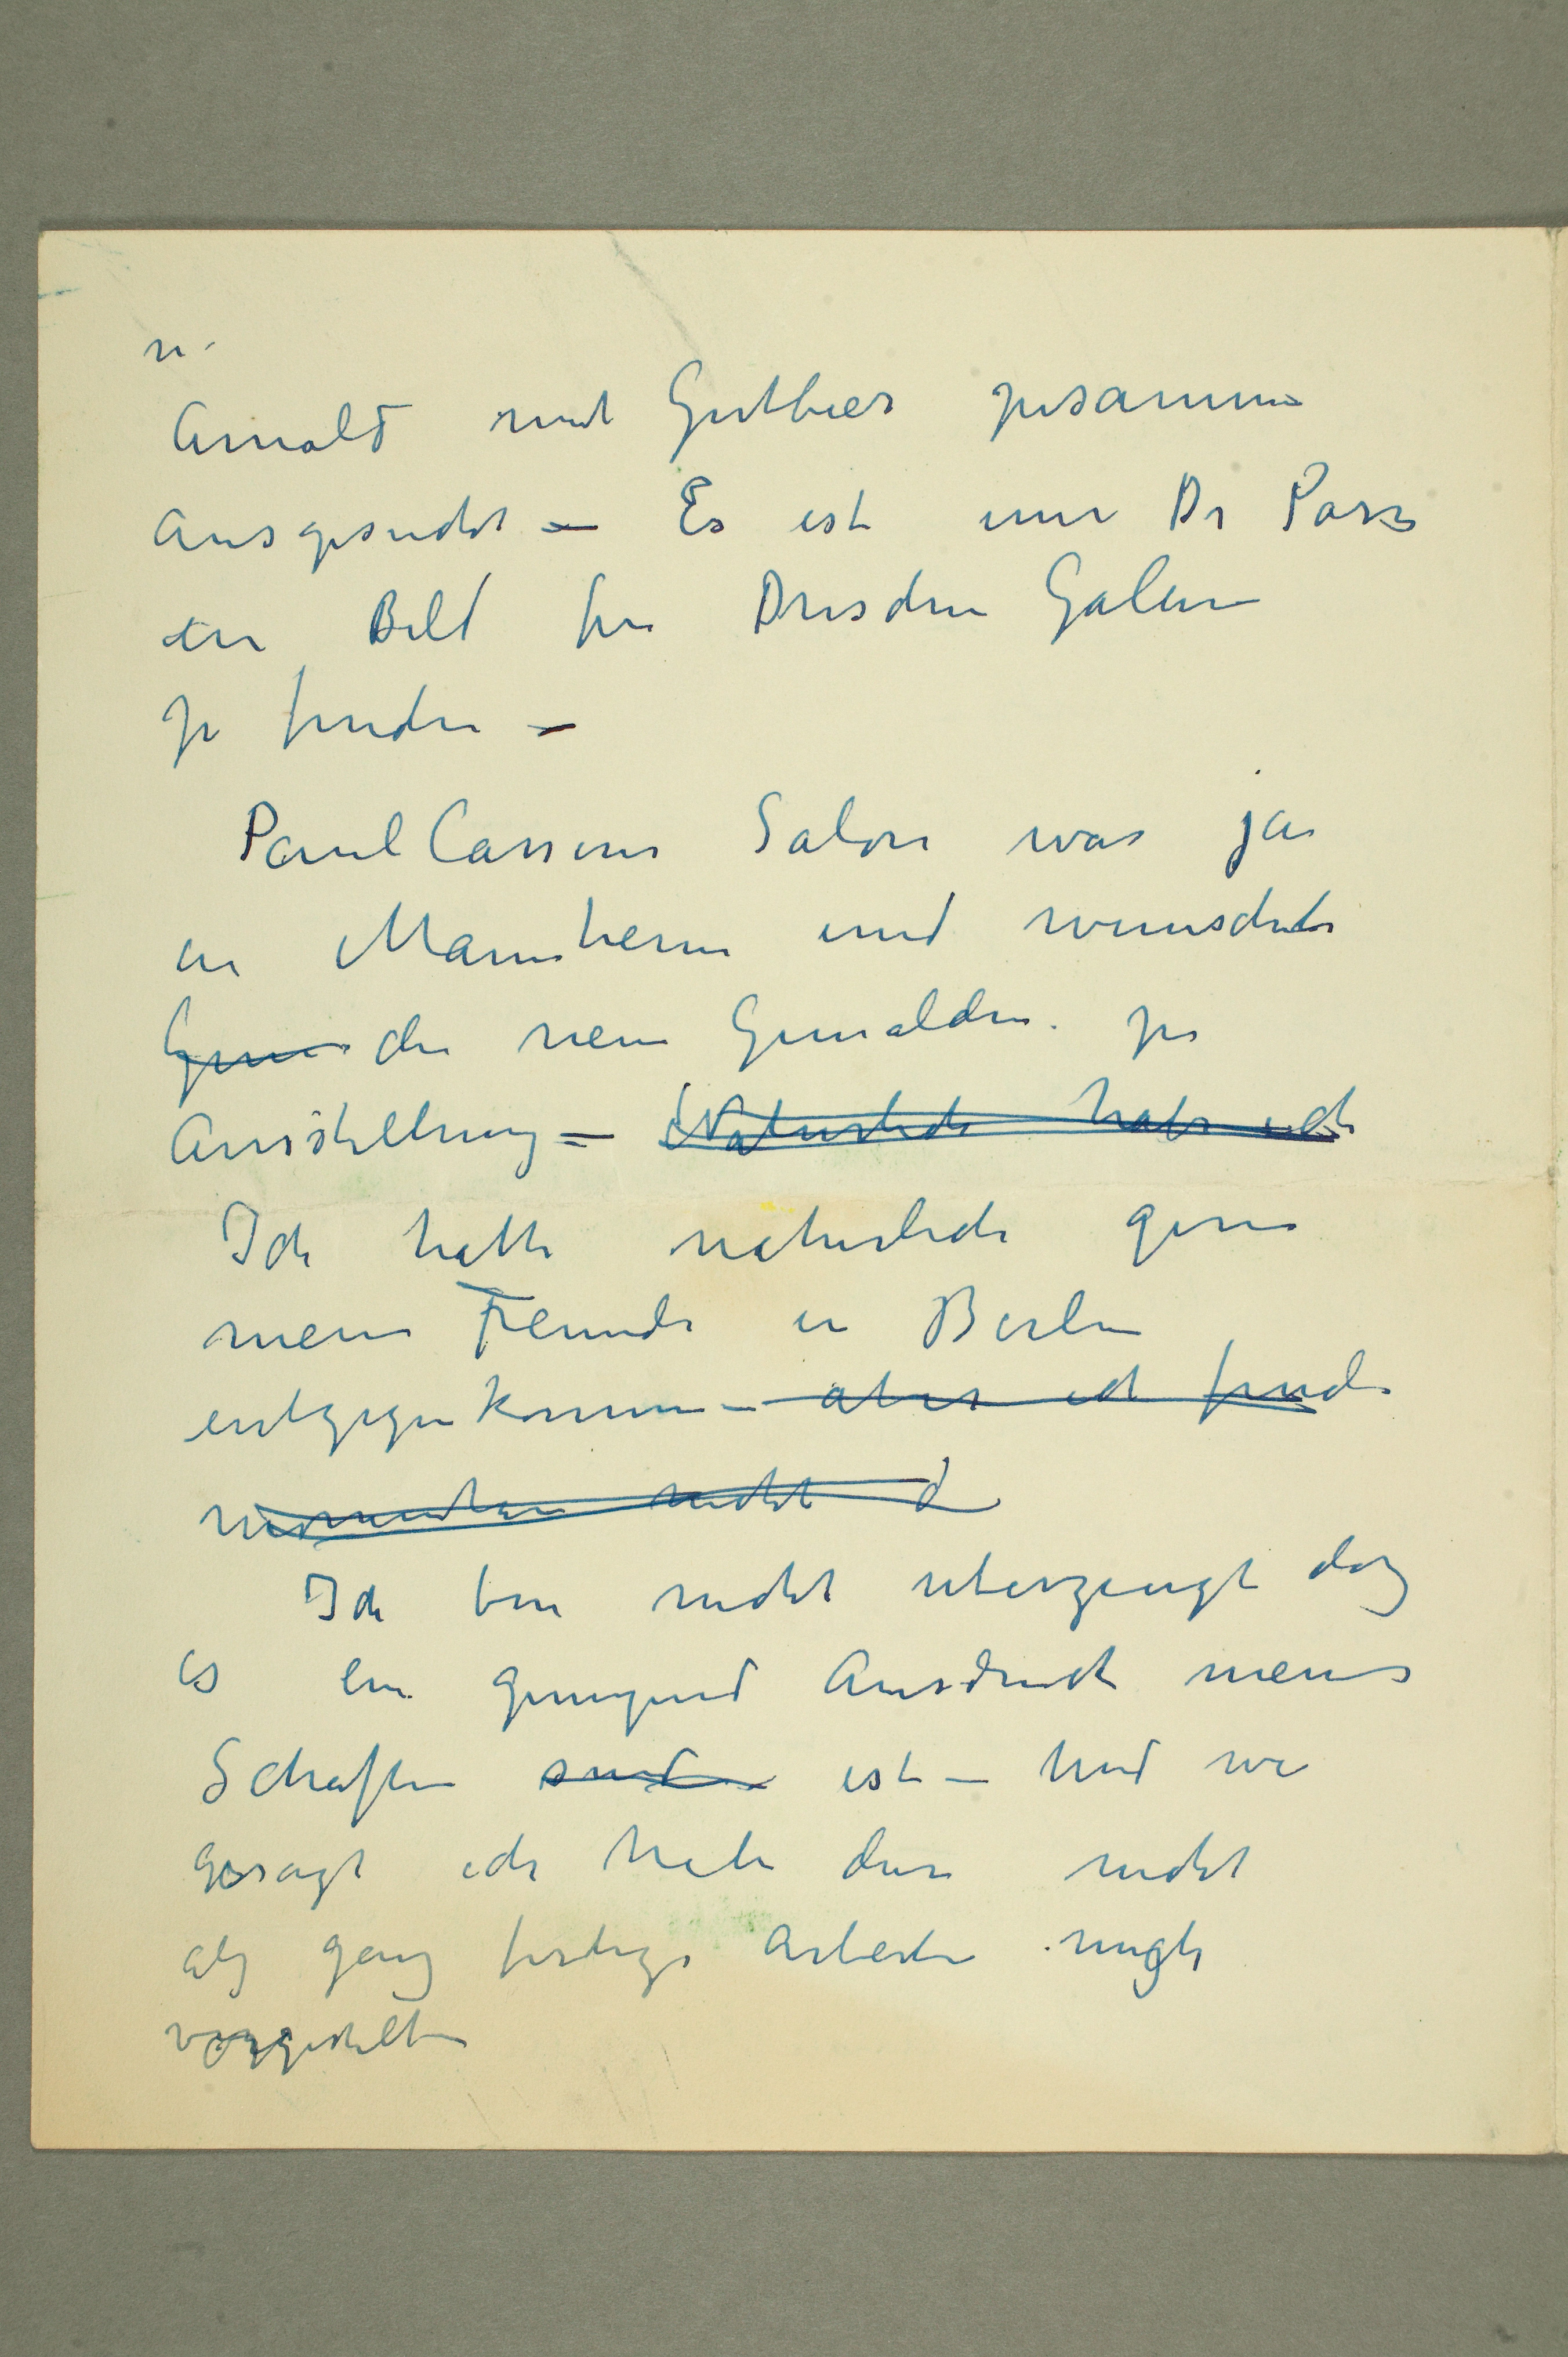 n.
Arnold mit Gutbier zusammen
ausgesucht – Es ist um Dr Poss
ein Bild für Dresden Galerie
zu finden –
Paul Cassirer Salon war ja
in Mannheim und wunschte
die neue Gemalden zu
Ausstellung – Naturlich habe ich
Ich hatte naturlich gern
meine Freunde in Berlin
entgegenkommen – aber ich finde
momentan nicht d
Ich bin nicht uberzeugt daß
es ein genugend Ausdruck meines
Schaffen sind ist – Und wie
gesagt ich habe diese nicht
als ganz fertige Arbeiten
vorgestellt